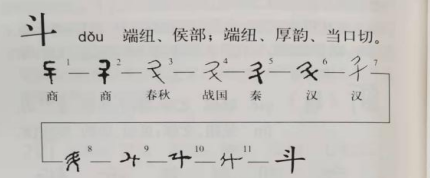 斗 dǒu 端纽、侯部；端纽、厚韵、当口切。
1 2 3 4 5 6 7
商 商 春秋 战国 秦 汉 汉
8 9 10 11 斗